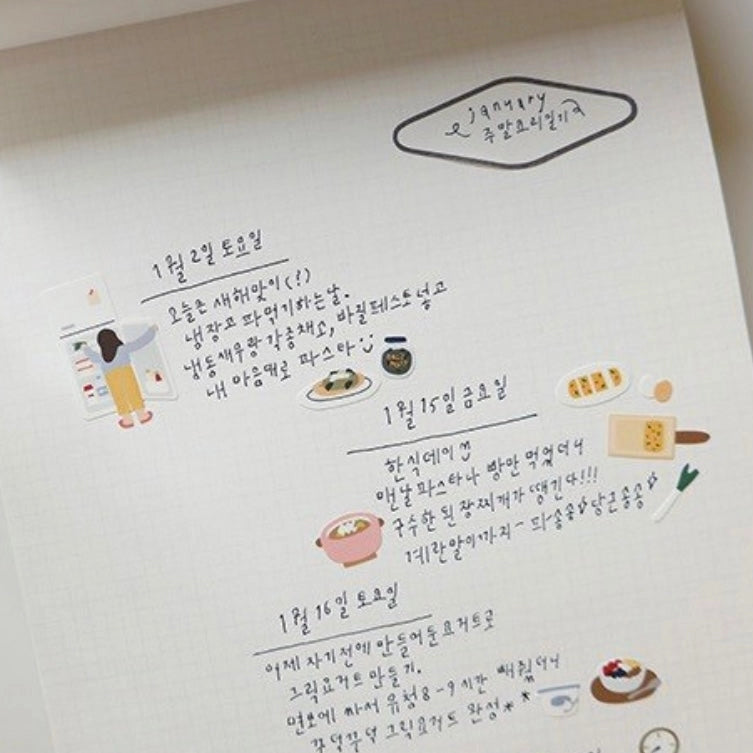 january
주말요리일기
1월 2일 토요일
오늘은 새해맞이(!)
냉장고 파먹기하는날.
냉동새우랑 각종채소, 바질페스토넣고
내 마음대로 파스타
1월 15일 금요일
한식데이
맨날 파스타나 빵만 먹었더니
구수한 된장찌개가 땡긴다!!!
계란말이까지~ 파송송 당근송송
1월 16일 토요일
어제 자기전에 만들어둔 요거트로
그릭요거트 만들기.
면보에 싸서 유청 8-9시간 빼줬더니
꾸덕꾸덕 그릭요거트 완성**